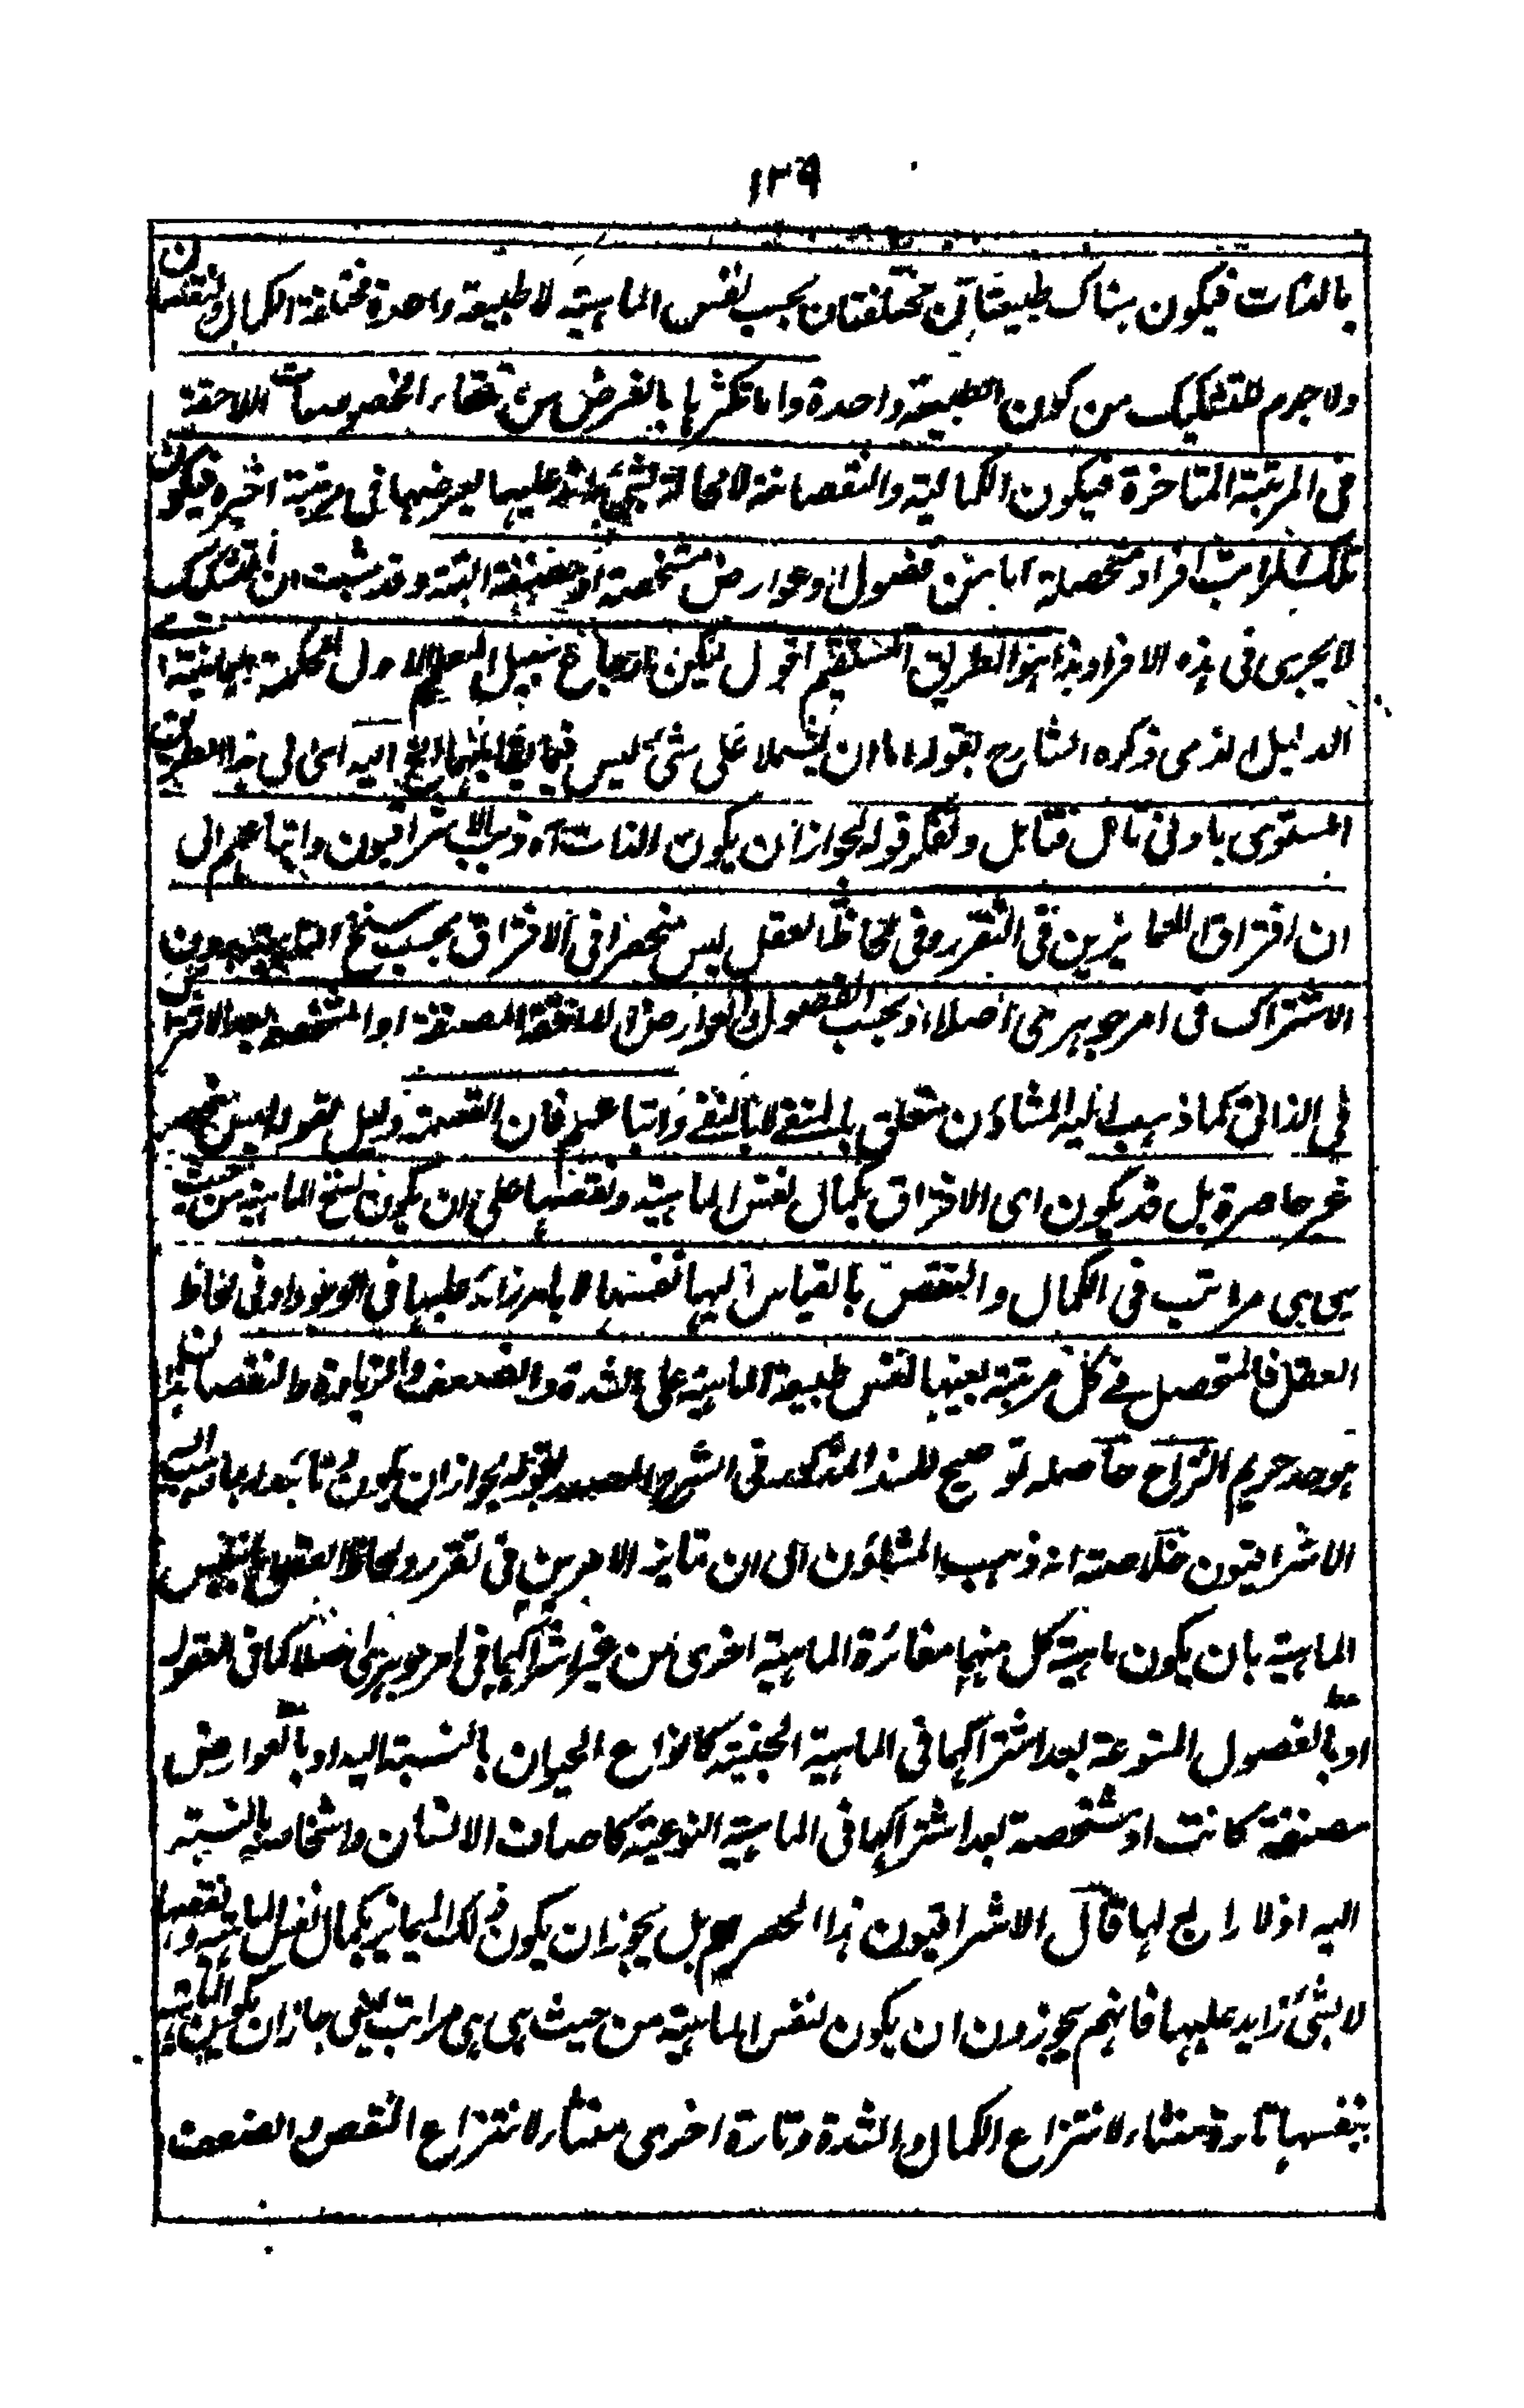 ١٣٩
بالذات فيكون هناك طبيعتان مختلفتان بحسب نفس الماهية لا طبيعة واحدة مختلفة الكمال والنقصان
ولا جرم للتشكيك من كون الطبيعة واحدة واما تكثرها بالفرض من تلقاء الخصوصيات اللاحقة
فى المرتبة المتاخرة فيكون الكمالية والنقصانية لا محالة لشئ زائد عليها يعرضها فى مرتبة اخيرة فيكون
تلك افراد متحصلة اما من فصول او عوارض مشخصة او مصنفة البتة وقد ثبت ان التشكيك
لا يجرى فى هذه الافراد هذا هو الطريق المستقيم اقول لكن سبيل الاول
الدليل الذى ذكره الشارح بقوله اما ان يشملا على شئ ليس فيما يقابلهما الخ اليه اى الى هذا الطريق
المستوى باونى تامل فتامل وتفكر قوله لجواز ان يكون الذات آه ذهب الاشراقيون واتباعهم الى
ان افتراق المتمايزين فى التقرر وفى لحاظ العقل ليس منحصرا فى الافتراق بحسب سنخ الماهية بدون
الاشتراك فى امر جوهرى اصلا او بحسب الفصول او العوارض اللاحقة المصنفة او المشخصة بعد الاشتراك
فى الذاتى كما ذهب اليه المشاؤن متعلق بالمنفے لا بالنفے واتباعهم فان القسمة دليل لقوله ليس منحصرا
غير حاصرة بل قد يكون اى الافتراق بكمال نفس الماهية ونقصها على ان يكون لسنخ الماهية من حيث
هى هى مراتب فى الكمال والنقص بالقياس اليها نفسها لا بامر زائد عليها فى الوجود او فى لحاظ
العقل فالمتحصل فے كل مرتبة بعينها نفس طبيعة الماهية على الشدة والضعف والزيادة والنقصان هذا
هو حد حريم النزاع حاصله توضيح للسند المذكور فى الشرح المصدر بقوله لجواز ان يكون اليه
الاشراقيون خلاصته انه ذهب المشاؤن الى ان تمايز الامرين فى تقرر ولحاظ العقل اما بنفس
الماهية بان يكون ماهية كل منهما مغائرة الماهية اخرى من غير اشتراكهما فى امر جوهرى اصلا كما فى المقولة
او بالفصول المنوعة بعد اشتراكهما فى الماهية الجنسية كانواع الحيوان بالنسبة اليه او بالعوارض
مصنفة كانت او مشخصة بعد اشتراكها فى الماهية النوعية كاصناف الانسان واشخاصه بالنسبة
اليه اذ لا رابع لها قال الاشراقيون هذا الحصر بل يجوز ان يكون ذلك التمايز بكمال نفس الماهية ونقصها
لا بشئ زايد عليها فانهم يجوزون ان يكون لنفس الماهية من حيث هى هى مراتب يعنى جاز ان يكون الماهية
بنفسها تارة منشاء لانتزاع الكمال والشدة وتارة اخرى منشاء لانتزاع النقص والضعف